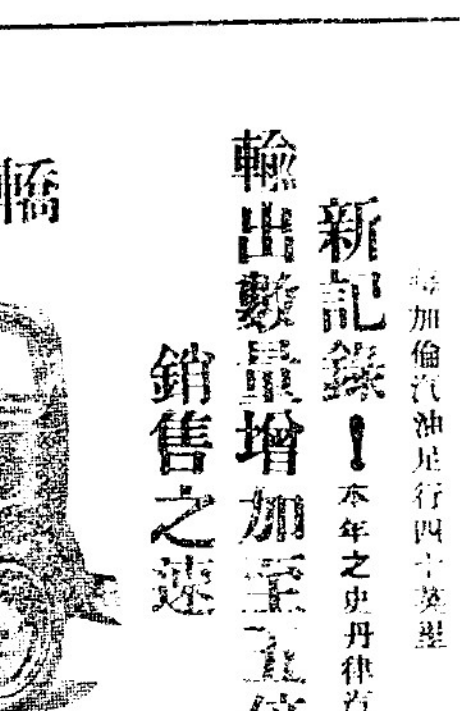 每加倫汽油足行四十英里
新記錄！本年之史丹律汽
輸出數量增加至五倍
銷售之速
轎